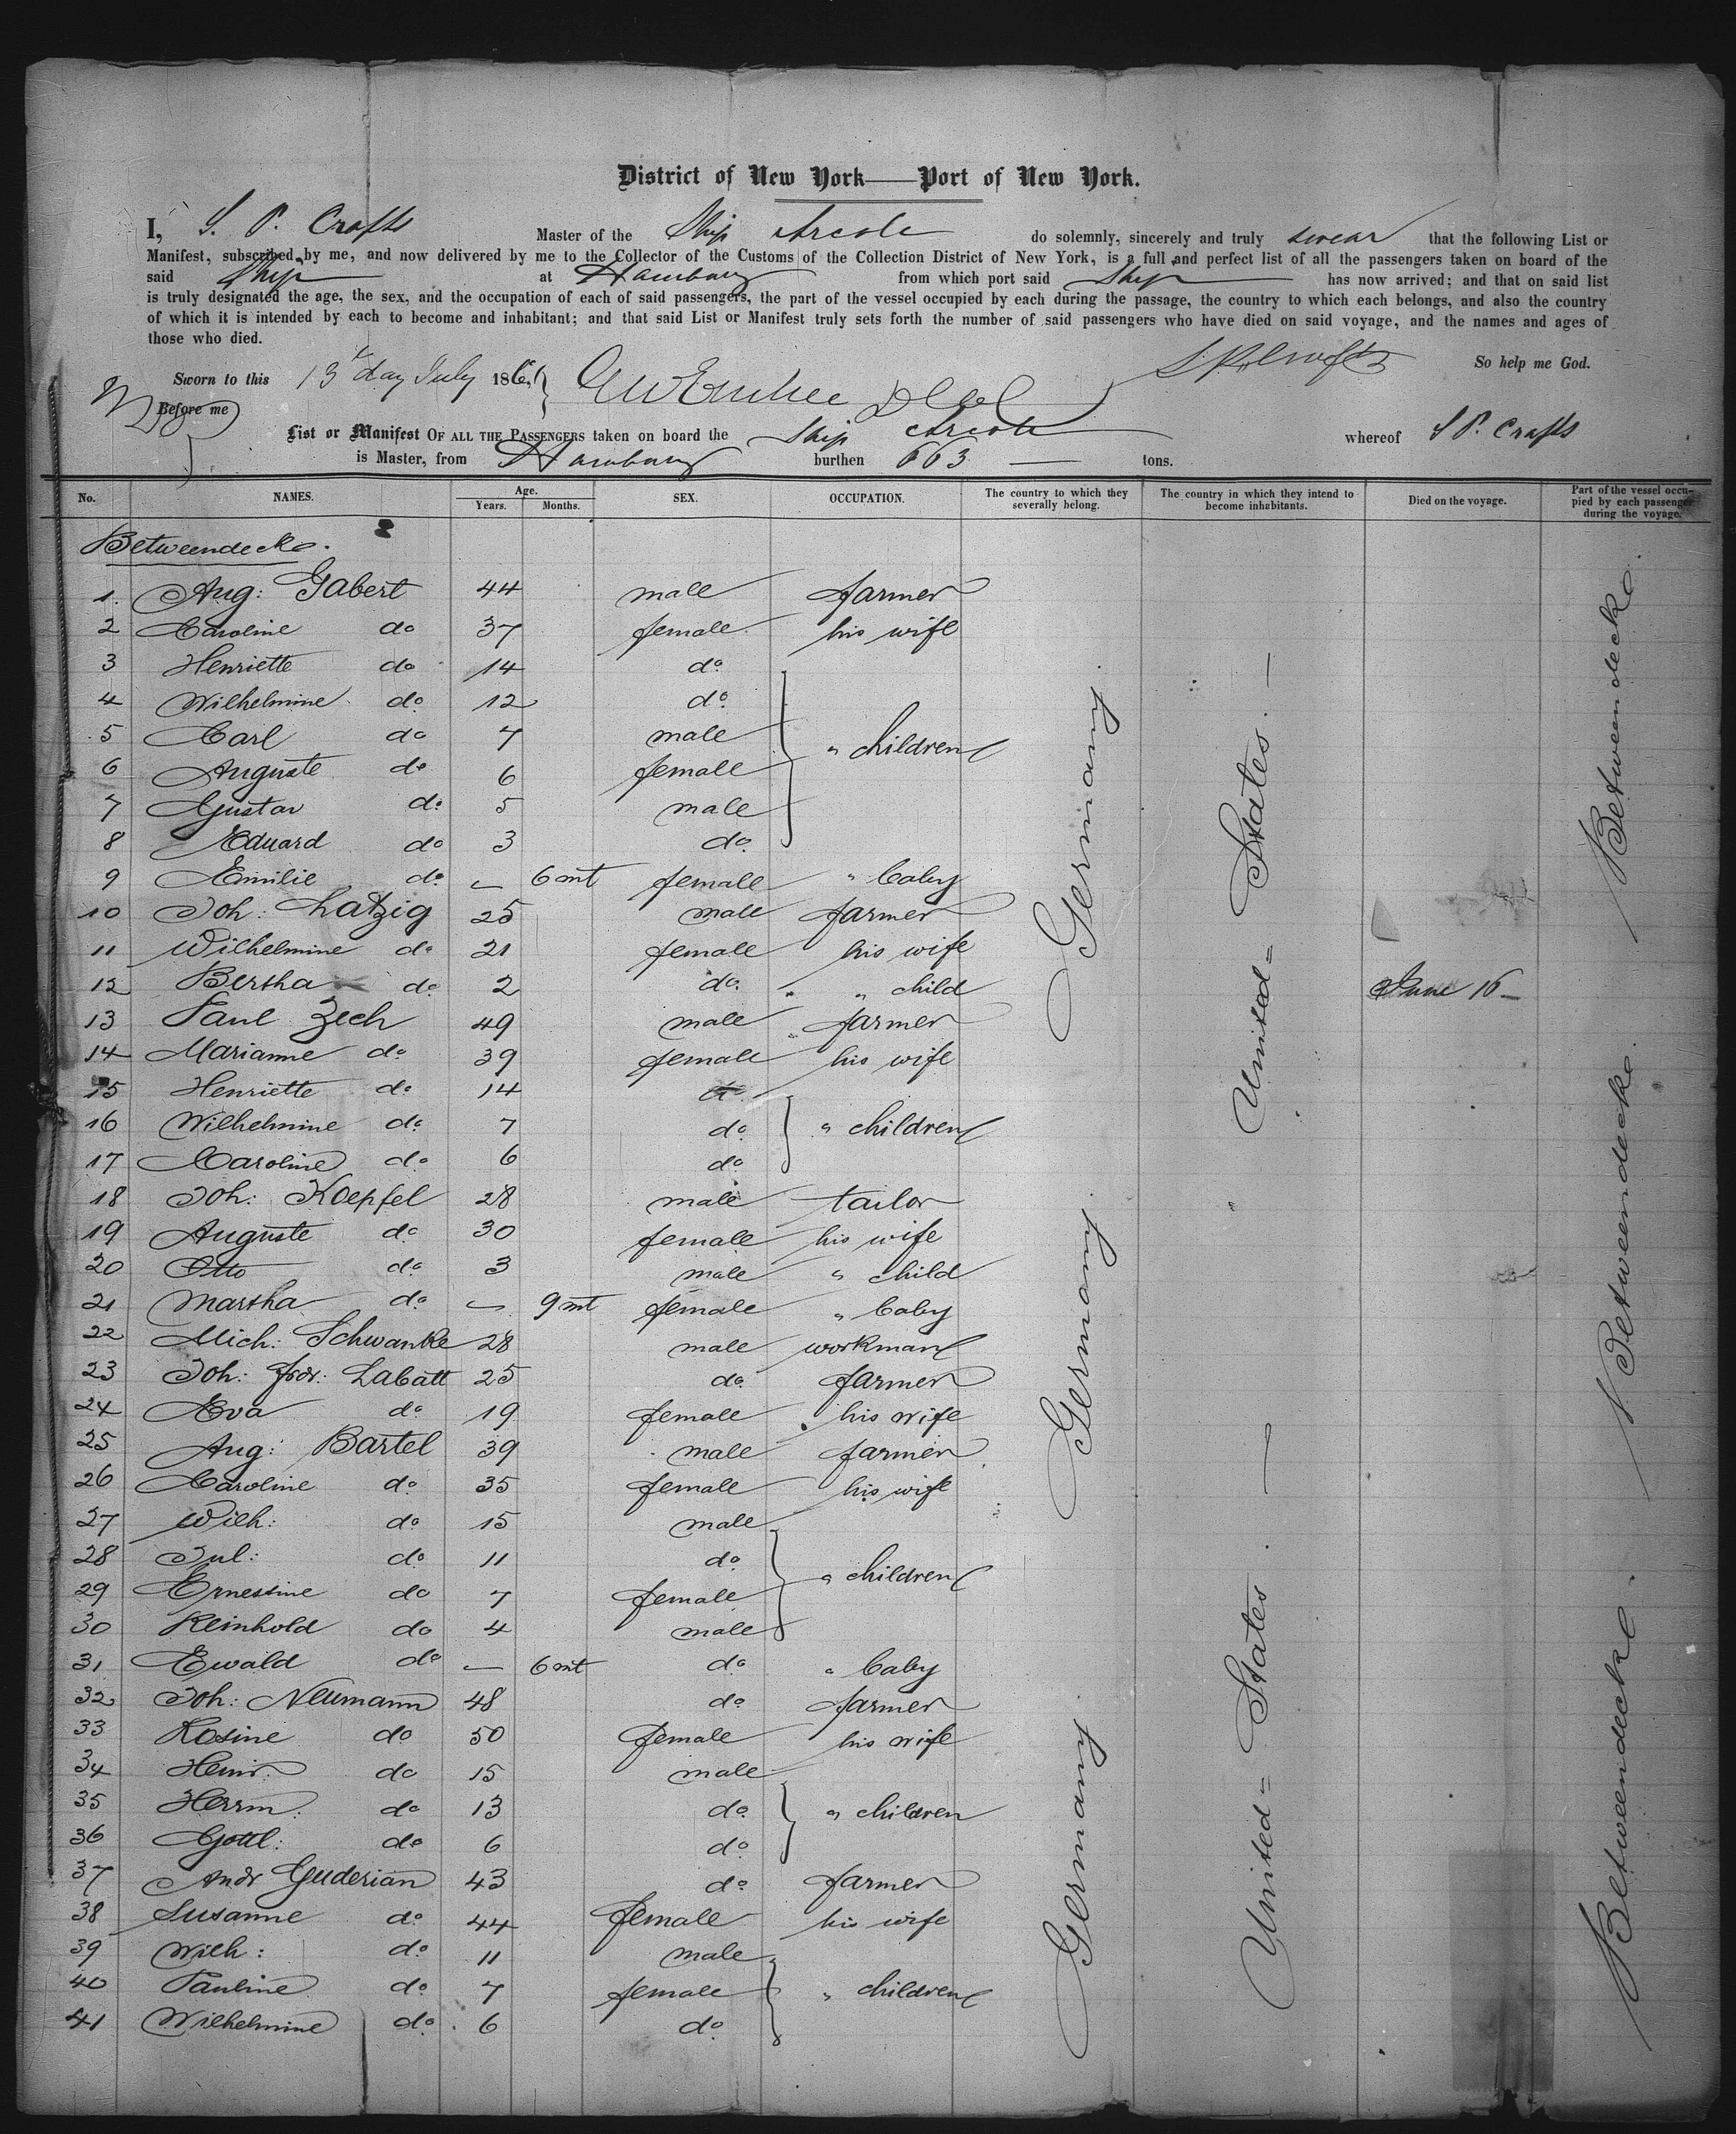 District of New York—Port of New York.
I, S. P. Crafts Master of the Ship Arcole do solemnly, sincerely and truly swear that the following List or
Manifest, subscribed by me, and now delivered by me to the Collector of the Customs of the Collection District of New York, is a full and perfect list of all the passengers taken on board of the
said Ship at Hamburg from which port said Ship has now arrived; and that on said list
is truly designated the age, the sex, and the occupation of each of said passengers, the part of the vessel occupied by each during the passage, the country to which each belongs, and also the country
of which it is intended by each to become and inhabitant; and that said List or Manifest truly sets forth the number of said passengers who have died on said voyage, and the names and ages of
those who died.
Sworn to this 13th day July 186 S. P. Crafts So help me God.
Before me
List or Manifest OF ALL THE PASSENGERS taken on board the Ship Arcole whereof S P. Crafts
is Master, from Hamburg burthen 663 tons.
No. NAMES. Age. Years. Months. SEX. OCCUPATION. The country to which they severally belong. The country in which they intend to become inhabitants. Died on the voyage. Part of the vessel occupied by each passenger during the voyage.
Betweendecks.
1. Aug: Gabert 44 male farmer
2 Caroline do 37 female his wife
3 Henriette do 14 do
4 Wilhelmine do 12 do
5 Carl do 7 male " children
6 Auguste do 6 female
7 Gustav do 5 male
8 Eduard do 3 do
9 Emilie do — 6 mt female " baby
10 Joh: Latzig 25 male farmer
11 Wilhelmine do 21 female his wife
12 Bertha do 2 do " child June 16
13 Paul Zech 49 male farmer
14 Marianne do 39 female his wife
15 Henriette do 14 do
16 Wilhelmine do 7 do " children
17 Caroline do 6 do
18 Joh: Koepfel 28 male tailor
19 Auguste do 30 female his wife
20 Otto do 3 male " child
21 Martha do — 9 mt female " baby
22 Mich: Schwanke 28 male workman
23 Joh: Frdr: Labatt 25 do farmer
24 Eva do 19 female his wife
25 Aug: Bartel 39 male farmer
26 Caroline do 35 female his wife
27 Wilh: do 15 male
28 Jul: do 11 do " children
29 Ernestine do 7 female
30 Reinhold do 4 male
31 Ewald do — 6 mt do " baby
32 Joh: Neumann 48 do farmer
33 Rosine do 50 female his wife
34 Heinr. do 15 male
35 Herrm: do 13 do " children
36 Gottl: do 6 do
37 Andr Guderian 43 do farmer
38 Susanne do 44 female his wife
39 Wilh: do 11 male
40 Pauline do 7 female " children
41 Wilhelmine do 6 do
Germany.
Germany.
Germany
United= States. —
—
United= States.
Betweendecks.
Betweendecks.
Betweendecks.